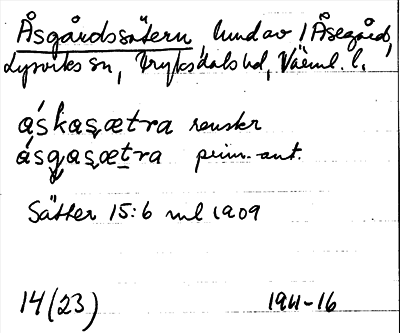 Åsgårdssätern, lund av 1 Åsegård,
Lysviks sn, Fryksdals hd, Värml. l.
áskas̨ætra renskr
ásgas̨ætra prim.-ant.
Sätter 15:6 ml 1909
14(23) 1911-16